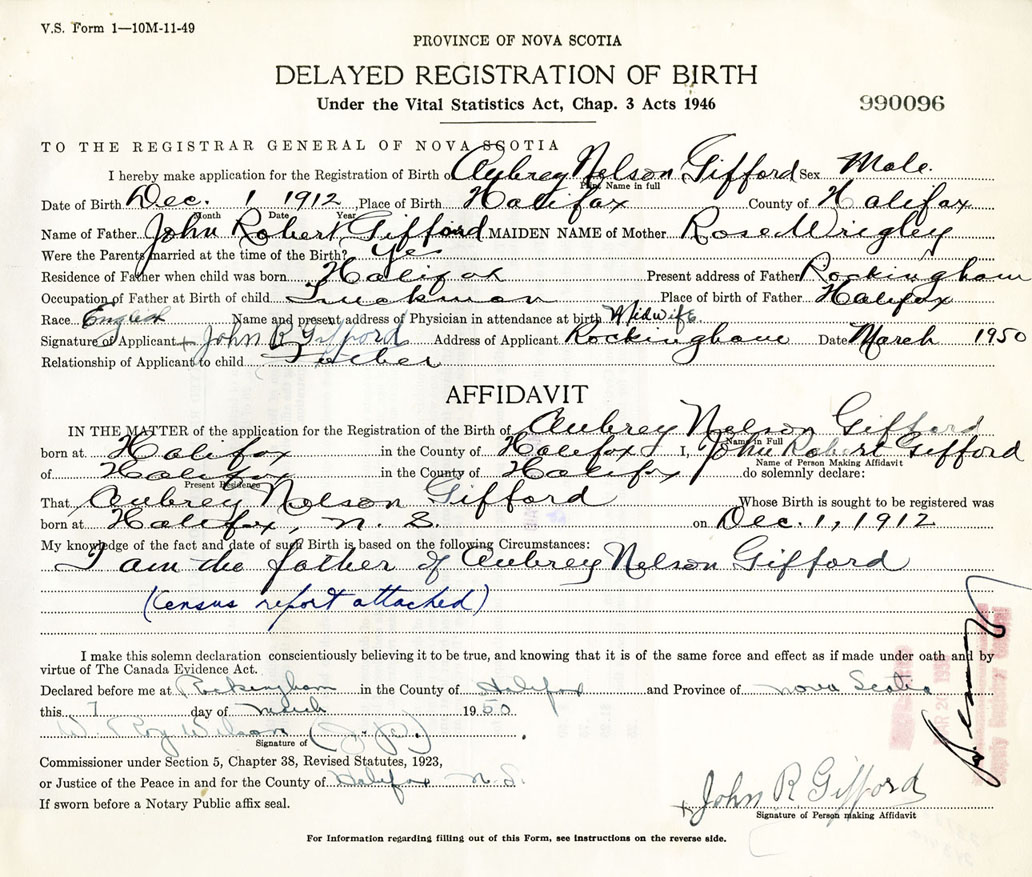 V.S. Form 1—10M-11-49
PROVINCE OF NOVA SCOTIA
DELAYED REGISTRATION OF BIRTH
Under the Vital Statistics Act, Chap. 3 Acts 1946
990096
TO THE REGISTRAR GENERAL OF NOVA SCOTIA
I hereby make application for the Registration of Birth of Aubrey Nelson Gifford Sex Male.
Name in full
Date of Birth Dec. 1 1912 Place of Birth Halifax County of Halifax
Month Date Year
Name of Father John Robert Gifford MAIDEN NAME of Mother Rose Wrigley
Were the Parents married at the time of the Birth? Yes
Residence of Father when child was born Halifax Present address of Father Rockingham
Occupation of Father at Birth of child Truckman Place of birth of Father Halifax
Race English Name and present address of Physician in attendance at birth Midwife
Signature of Applicant John R Gifford Address of Applicant Rockingham Date March 1950
Relationship of Applicant to child Father
AFFIDAVIT
IN THE MATTER of the application for the Registration of the Birth of Aubrey Nelson Gifford
Name in Full
born at Halifax in the County of Halifax I, John Robert Gifford
Name of Person Making Affidavit
of Halifax in the County of Halifax do solemnly declare:
Present Residence
That Aubrey Nelson Gifford Whose Birth is sought to be registered was
born at Halifax, N. S. on Dec. 1, 1912
My knowledge of the fact and date of such Birth is based on the following Circumstances:
I am the father of Aubrey Nelson Gifford
(Census report attached)
I make this solemn declaration conscientiously believing it to be true, and knowing that it is of the same force and effect as if made under oath and by
virtue of The Canada Evidence Act.
Declared before me at Rockingham in the County of Halifax and Province of Nova Scotia
this 7 day of March 1950
W. Roy Wilson (J.P.)
Signature of
Commissioner under Section 5, Chapter 38, Revised Statutes, 1923,
or Justice of the Peace in and for the County of Halifax N.S.
If sworn before a Notary Public affix seal.
John R Gifford
Signature of Person making Affidavit
For Information regarding filling out of this Form, see instructions on the reverse side.
Deputy Registrar General